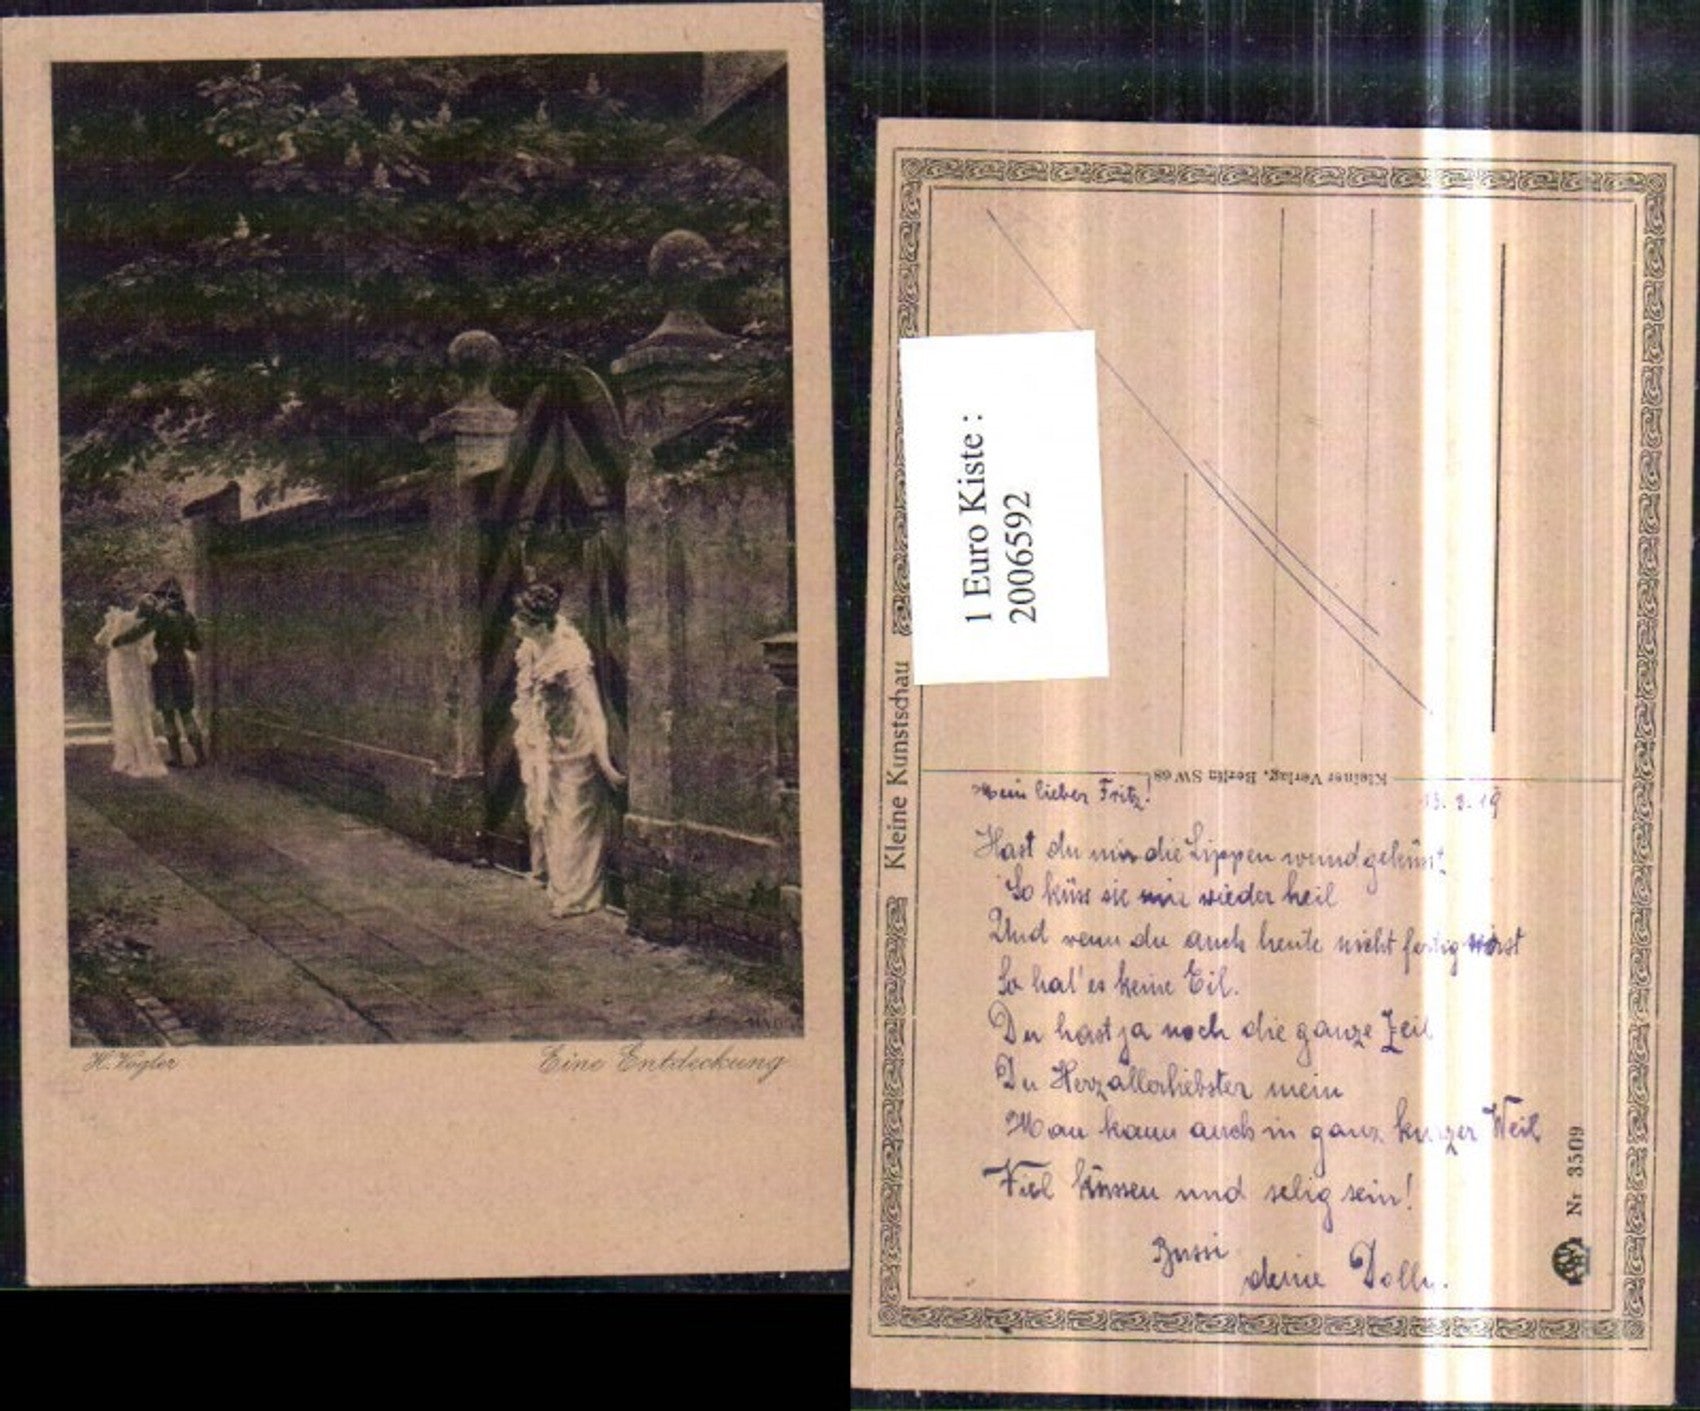 H. Vogler
Eine Entdeckung
1 Euro Kiste :
2006592
Kleine Kunstschau
Kleiner Verlag, Berlin SW 68
Mein lieber Fritz!
13. 8. 19
Hast du mir die Lippen wund geküsst
So küss sie mir wieder heil
Und wenn du auch heute nicht fertig wirst
So hat's keine Eil.
Du hast ja noch die ganze Zeit
Du Herzallerliebster mein
Man kann auch in ganz kurzer Weil
Viel küssen und selig sein!
Bussi
deine Dolly.
Nr 3509